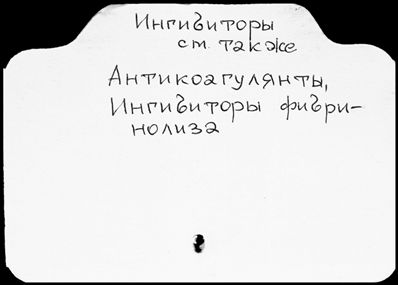 Ингибиторы
см. также
Антикоагулянты,
Ингибиторы фибри-
нолиза